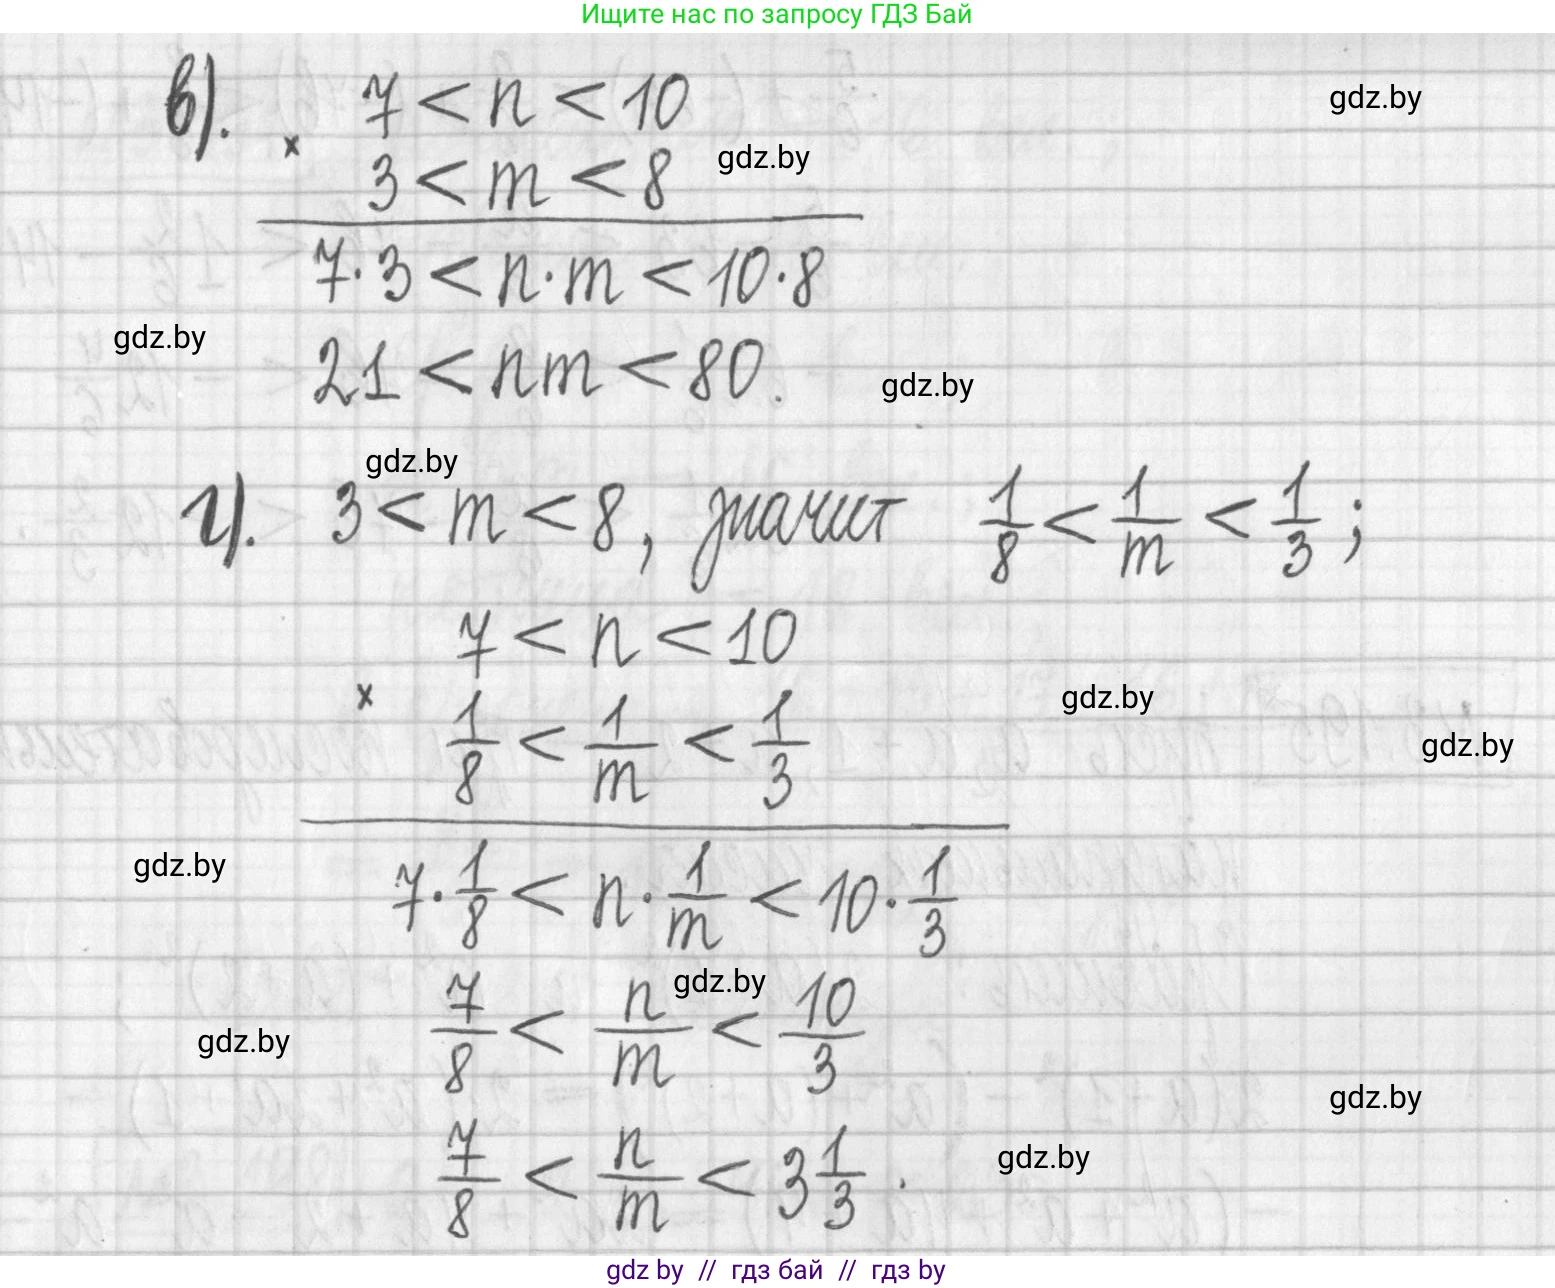 Ищите нас по запросу ГДЗ Бай
в). 7 < n < 10
gdz.by
× 3 < m < 8
gdz.by
7·3 < n·m < 10·8
gdz.by
21 < nm < 80.
gdz.by
gdz.by
г). 3 < m < 8, значит 1/8 < 1/m < 1/3 ;
7 < n < 10
× 1/8 < 1/m < 1/3
gdz.by
gdz.by
gdz.by
7·1/8 < n·1/m < 10·1/3
gdz.by
7/8 < n/m < 10/3
gdz.by
gdz.by
7/8 < n/m < 3 1/3 .
gdz.by
gdz by // гдз бай // гдз by